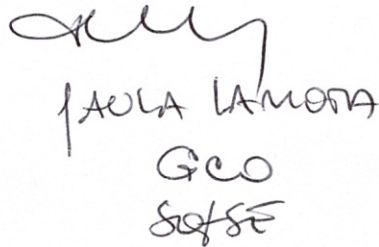 PAULA LAMOTA
GCO
SOFSE